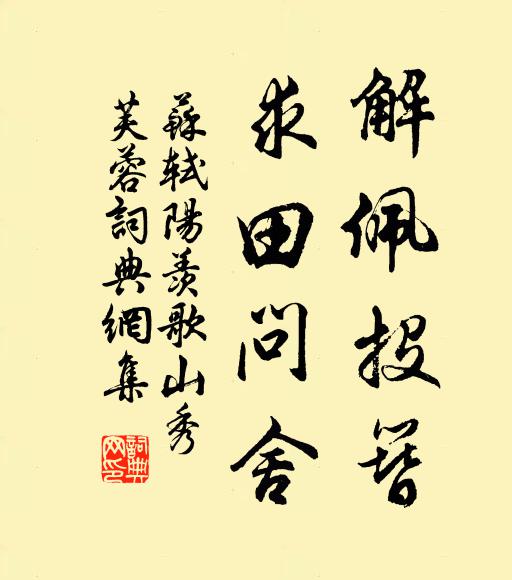 解佩投簪
求田問舍
蘇軾陽羨歌山秀
芙蓉詞典網集
詞典网印